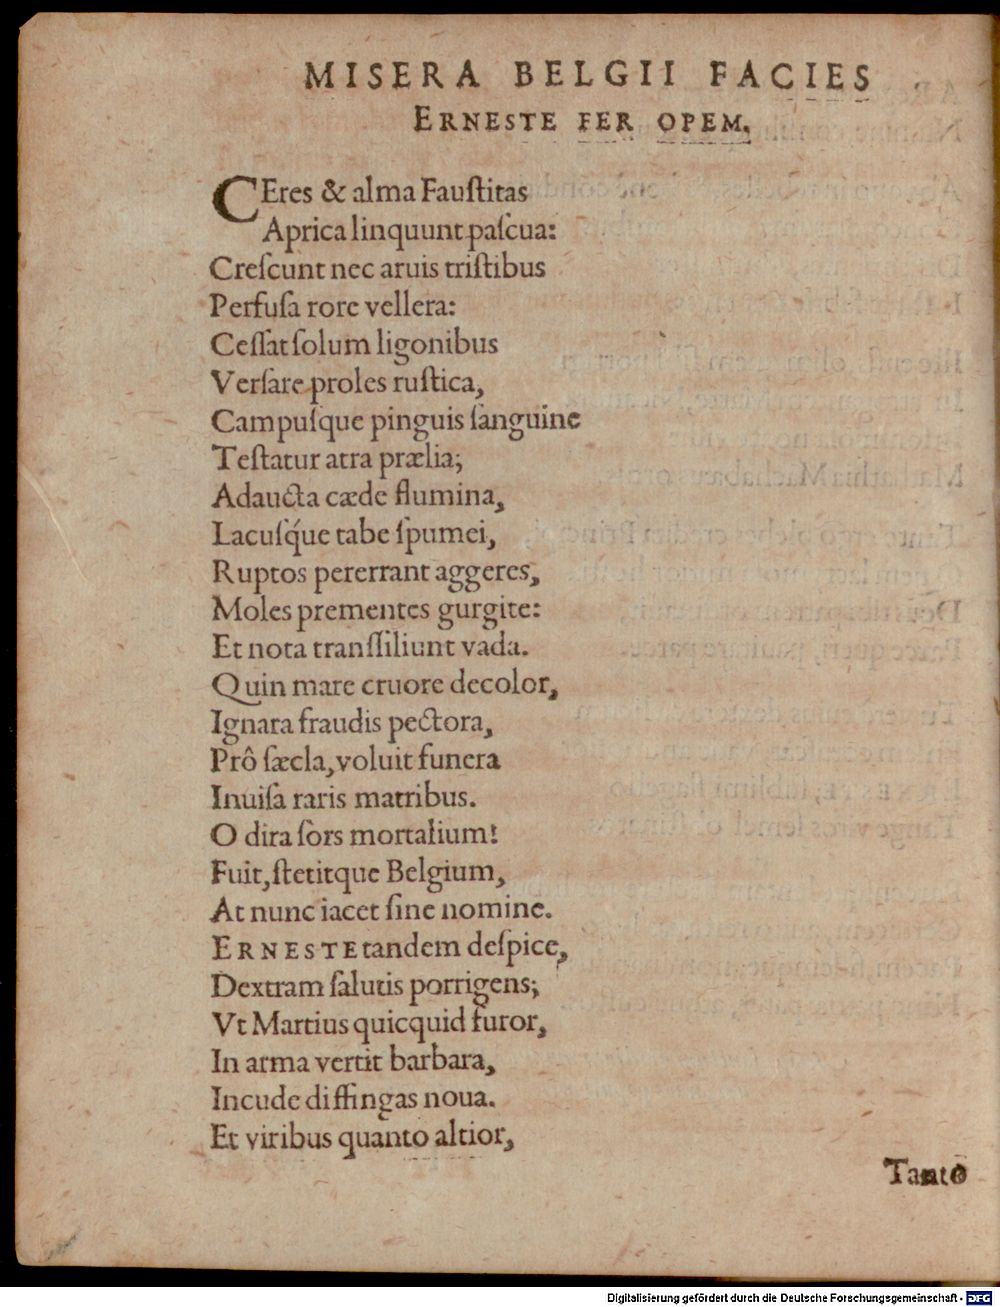 MISERA BELGII FACIES
ERNESTE FER OPEM.
CEres & alma Fauſtitas
Aprica linquunt paſcua:
Creſcunt nec aruis triſtibus
Perfuſa rore vellera:
Ceſſat ſolum ligonibus
Verſare proles ruſtica,
Campuſque pinguis ſanguine
Teſtatur atra prælia;
Adaucta cæde flumina,
Lacuſq́ue tabe ſpumei,
Ruptos pererrant aggeres,
Moles prementes gurgite:
Et nota tranſſiliunt vada.
Quin mare cruore decolor,
Ignara fraudis pectora,
Prô ſæcla, voluit funera
Inuiſa raris matribus.
O dira ſors mortalium!
Fuit, ſtetitque Belgium,
At nunc iacet ſine nomine.
ERNESTE tandem deſpice,
Dextram ſalutis porrigens;
Vt Martius quicquid furor,
In arma vertit barbara,
Incude diffingas noua.
Et viribus quanto altior,
Tanto
Digitalisierung gefördert durch die Deutsche Forschungsgemeinschaft - DFG